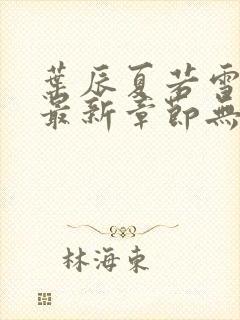 葉辰夏若雪
最新章節無
林海東